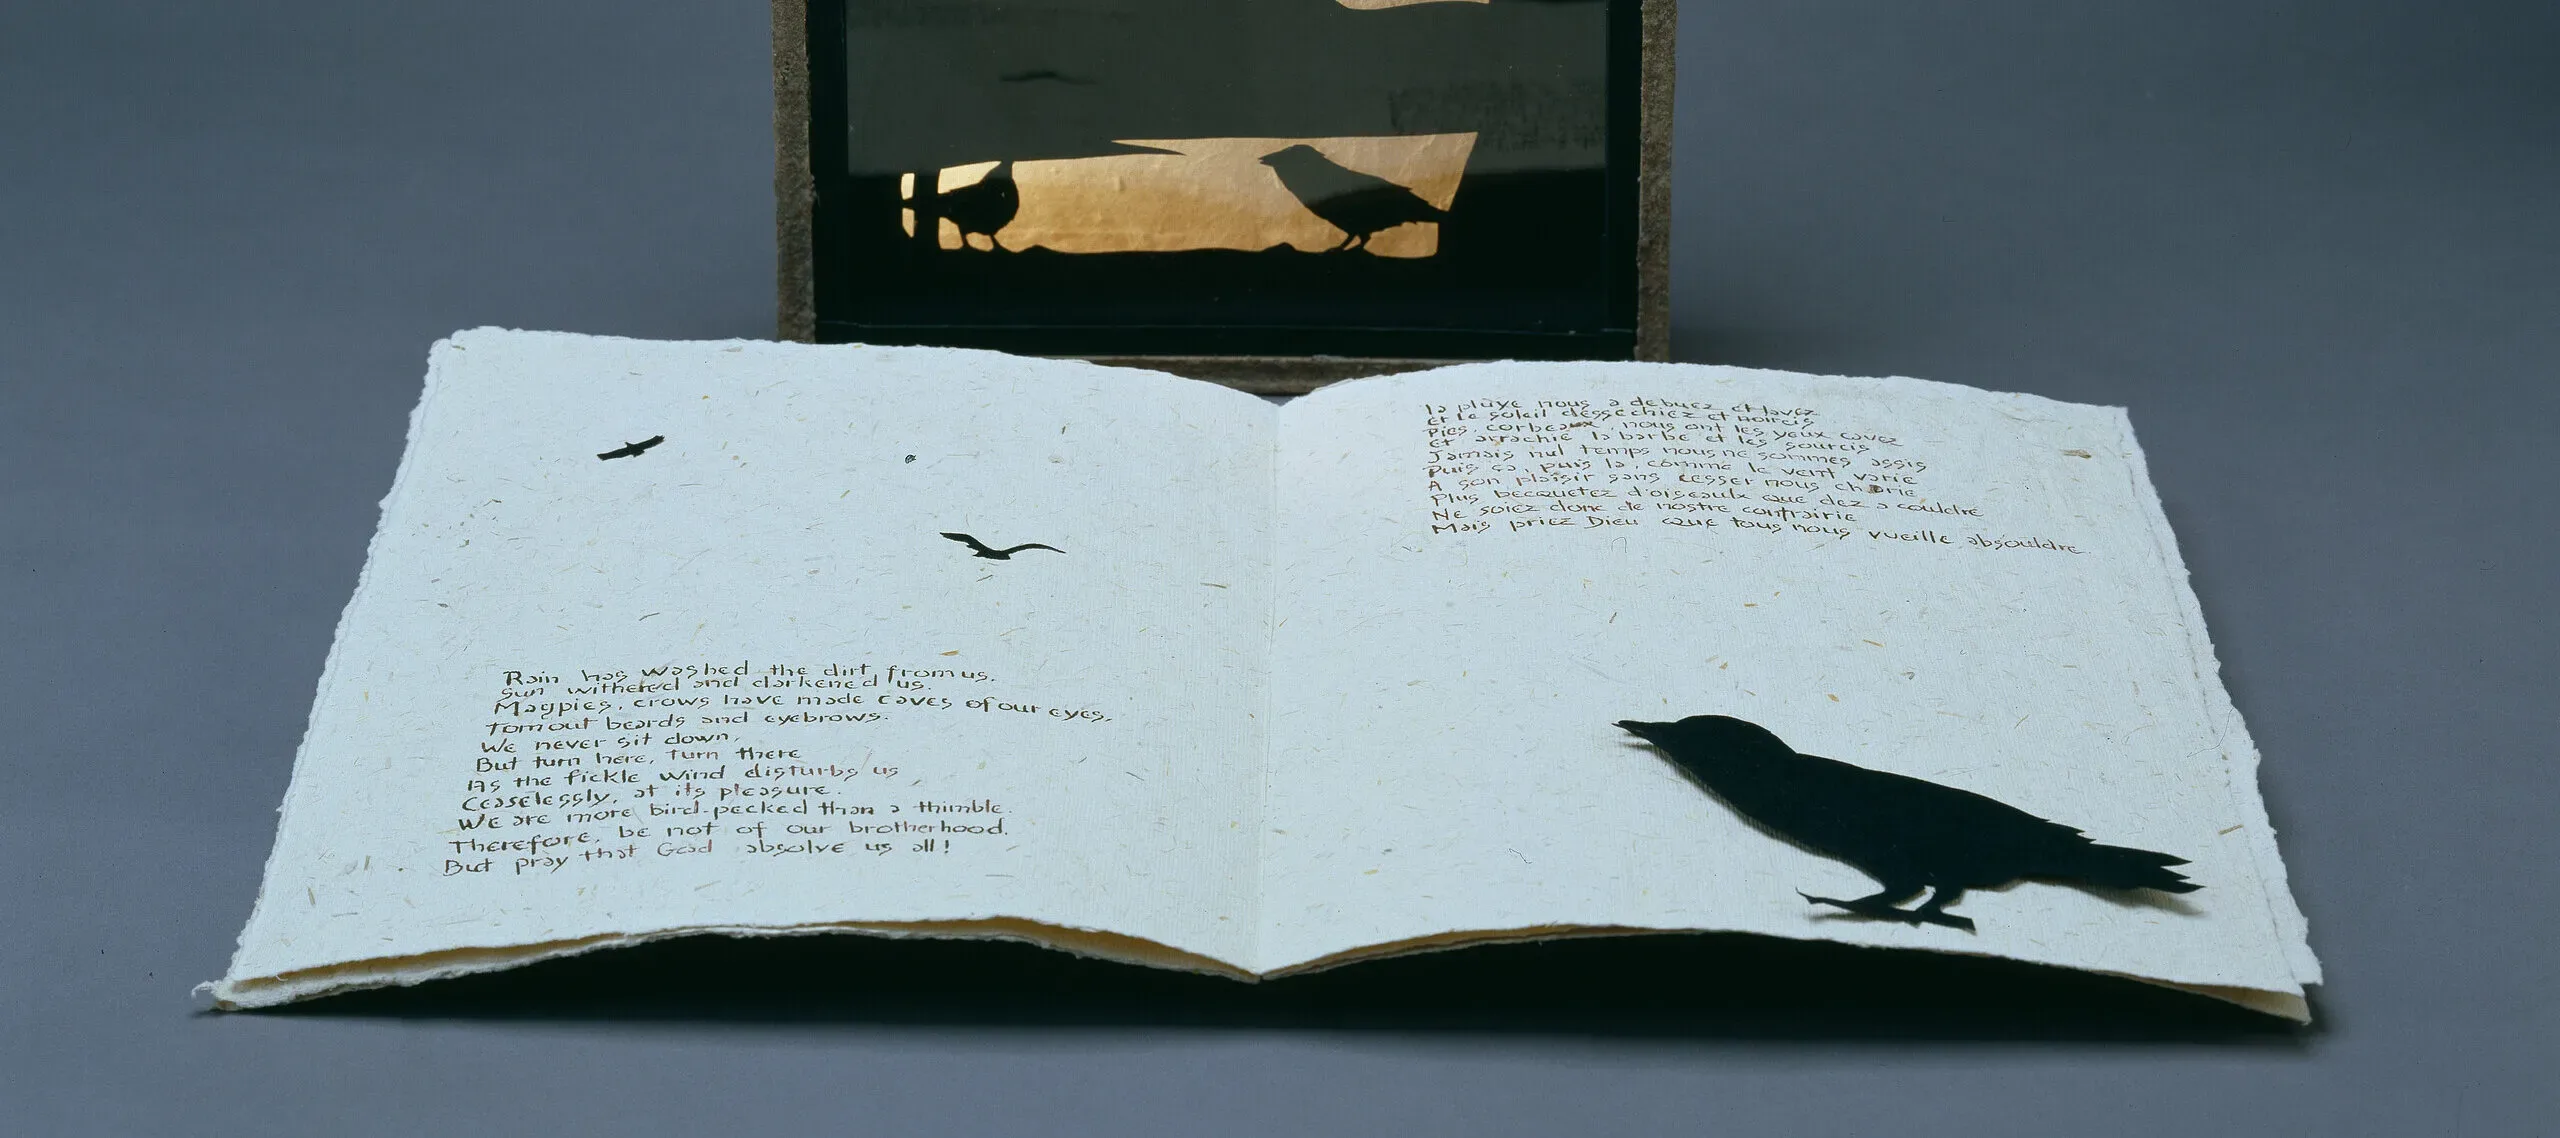 Rain has washed the dirt from us.
Sun withered and darkened us.
Magpies, crows have made caves of our eyes,
Torn out beards and eyebrows.
We never sit down,
But turn here, turn there
As the fickle wind disturbs us
Ceaselessly, at its pleasure.
We are more bird-pecked than a thimble.
Therefore, be not of our brotherhood.
But pray that God absolve us all!
la pluye nous a debuez et lavez
et le soleil dessechiez et noircis
Pies, corbeaux, nous ont les yeux cavez
Et arrachie la barbe et les sourcis
Jamais nul temps nous ne sommes assis
Puis ça, puis la, comme le vent varie
A son plaisir sans cesser nous charie
Plus becquetez d'oiseaulx que dez a couldre
Ne soiez donc de nostre confrairie
Mais priez Dieu que tous nous vueille absouldre.